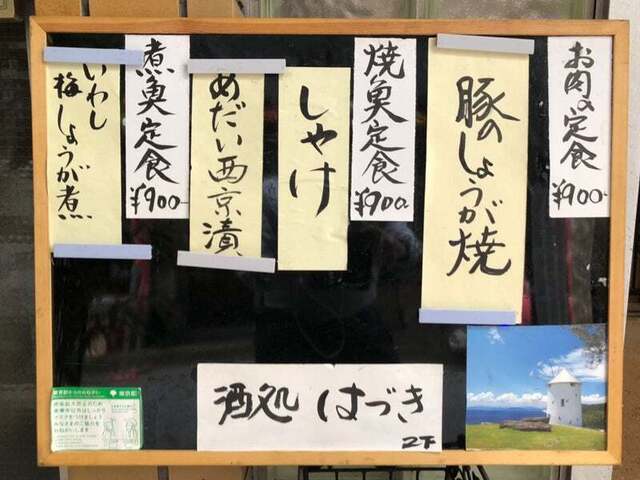 お肉の定食
¥900-
豚のしょうが焼
焼魚定食
¥900
しゃけ
めだい西京漬
煮魚定食
¥900-
いわし
梅しょうが煮
酒処 はづき
東京都